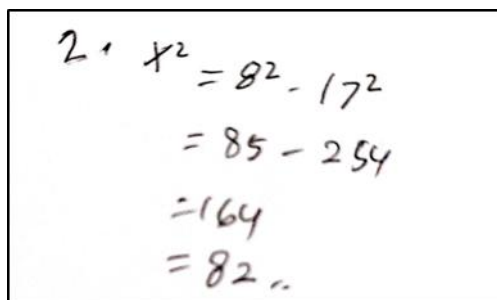 2. x² = 8² - 17²
= 85 - 254
= 164
= 82..